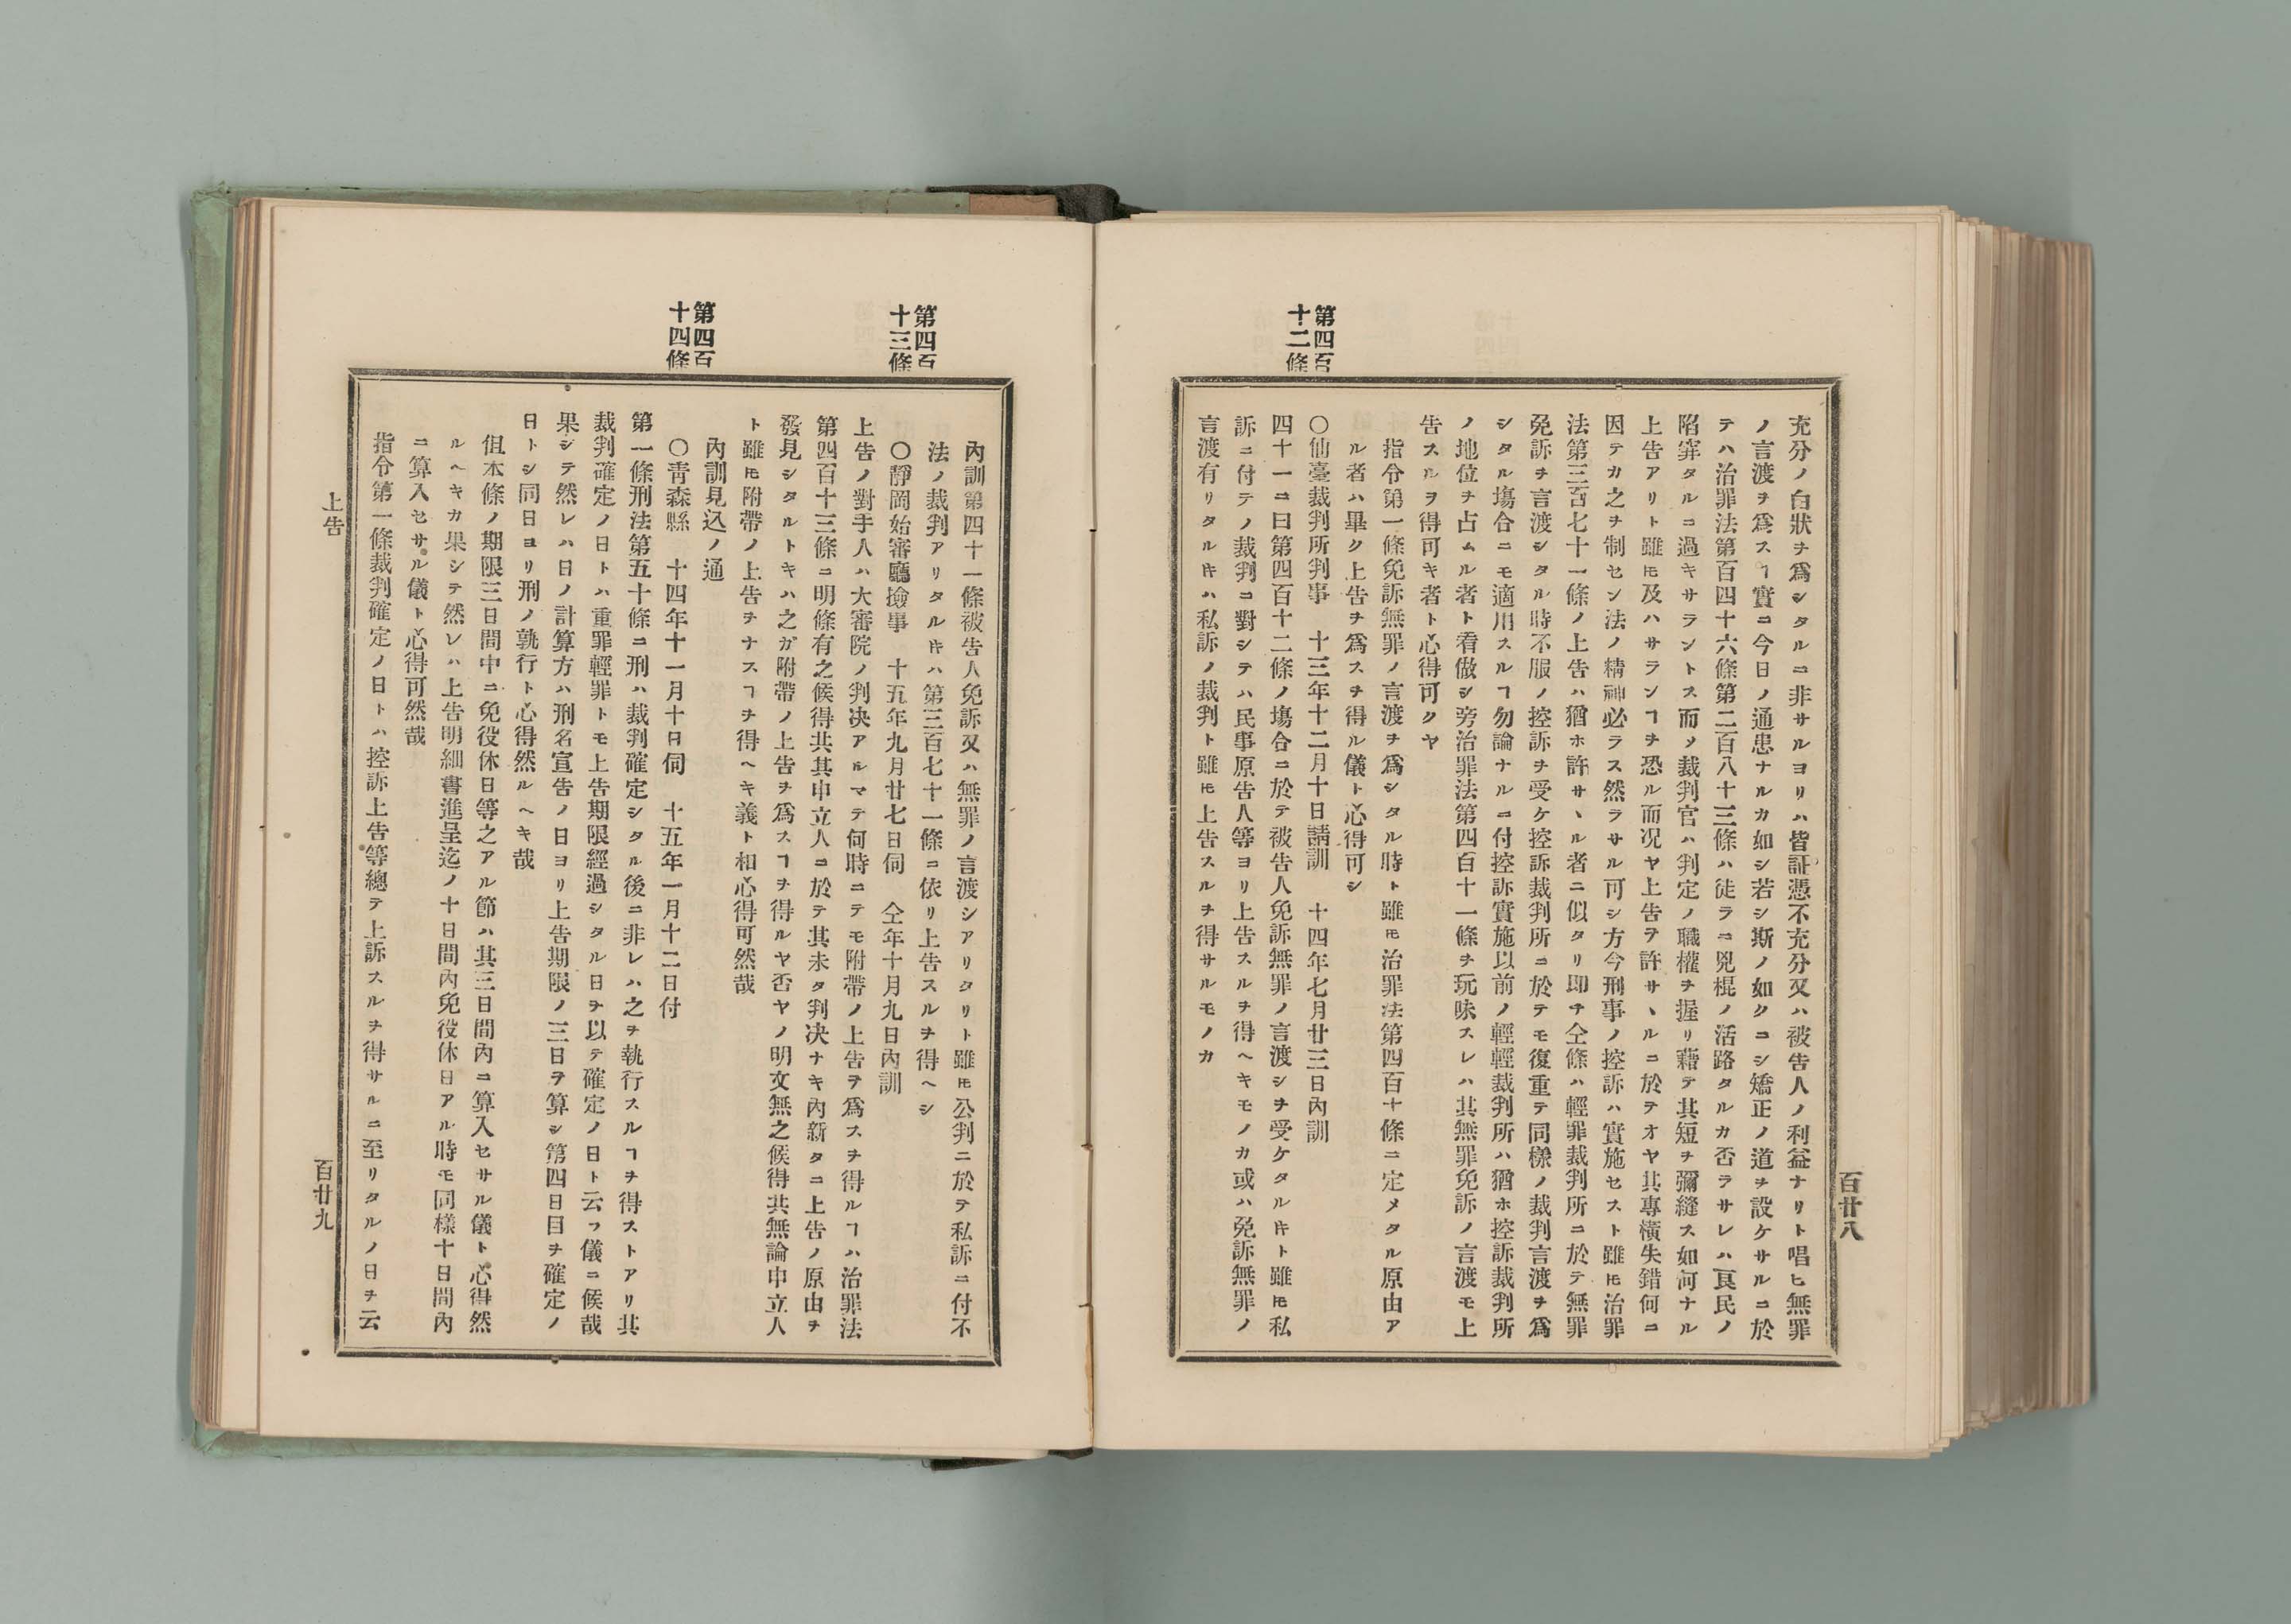 百廿八
充分ノ白狀ヲ爲シタルニ非サルヨリハ皆証憑不充分又ハ被告人ノ利益ナリト唱ヒ無罪
ノ言渡ヲ爲スヿ實ニ今日ノ通患ナルカ如シ若シ斯ノ如クニシ矯正ノ道ヲ設ケサルニ於
テハ治罪法第百四十六條第二百八十三條ハ徒ラニ兇棍ノ活路タルカ否ラサレハ良民ノ
陷穽タルニ過キサラントス而メ裁判官ハ判定ノ職權ヲ握リ藉テ其短ヲ彌縫ス如何ナル
上告アリト雖𪜈及ハサランヿヲ恐ル而况ヤ上告ヲ許サヽルニ於テオヤ其專横失錯何ニ
因テカ之ヲ制セン法ノ精神必ラス然ラサル可シ方今刑事ノ控訴ハ實施セスト雖𪜈治罪
法第三百七十一條ノ上告ハ猶ホ許サヽル者ニ似タリ即チ仝條ハ輕罪裁判所ニ於テ無罪
免訴ヲ言渡シタル時不服ノ控訴ヲ受ケ控訴裁判所ニ於テモ復重テ同樣ノ裁判言渡ヲ爲
シタル塲合ニモ適用スルヿ勿論ナルニ付控訴實施以前ノ輕輕裁判所ハ猶ホ控訴裁判所
ノ地位ヲ占ムル者ト看做シ旁治罪法第四百十一條ヲ玩味スレハ其無罪免訴ノ言渡モ上
告スルヲ得可キ者ト心得可クヤ
指令第一條免訴無罪ノ言渡ヲ爲シタル時ト雖𪜈治罪法第四百十條ニ定メタル原由ア
ル者ハ畢ク上告ヲ爲スヲ得ル儀ト心得可シ
第四百
十二條
〇仙臺裁判所判事　十三年十二月十日請訓　十四年七月廿三日內訓
四十一ニ曰第四百十二條ノ塲合ニ於テ被告人免訴無罪ノ言渡シヲ受ケタル𪜈ト雖𪜈私
訴ニ付テノ裁判ニ對シテハ民事原告人等ヨリ上告スルヲ得ヘキモノカ或ハ免訴無罪ノ
言渡有リタル𬼀ハ私訴ノ裁判ト雖𪜈上告スルヲ得サルモノカ
內訓第四十一條被告人免訴又ハ無罪ノ言渡シアリタリト雖𪜈公判ニ於テ私訴ニ付不
法ノ裁判アリタル𬼀ハ第三百七十一條ニ依リ上告スルヲ得ヘシ
第四百
十三條
〇靜岡始審廳撿事　十五年九月廿七日伺　仝年十月九日內訓
上告ノ對手人ハ大審院ノ判决アルマテ何時ニテモ附帶ノ上告ヲ爲スヲ得ルヿハ治罪法
第四百十三條ニ明條有之候得共其中立人ニ於テ其未タ判决ナキ內新タニ上告ノ原由ヲ
發見シタルトキハ之ガ附帶ノ上告ヲ爲スヿヲ得ルヤ否ヤノ明文無之候得共無論中立人
ト雖𪜈附帶ノ上告ヲナスヿヲ得ヘキ義ト相心得可然哉
內訓見込ノ通
第四百
十四條
〇靑森縣　十四年十一月十日伺　十五年一月十二日付
第一條刑法第五十條ニ刑ハ裁判確定シタル後ニ非レハ之ヲ執行スルヿヲ得ストアリ其
裁判確定ノ日トハ重罪輕罪トモ上告期限經過シタル日ヲ以テ確定ノ日ト云フ儀ニ候哉
果シテ然レハ日ノ計算方ハ刑名宣告ノ日ヨリ上告期限ノ三日ヲ算シ第四日目ヲ確定ノ
日トシ同日ヨリ刑ノ執行ト心得然ルヘキ哉
但本條ノ期限三日間中ニ免役休日等之アル節ハ其三日間內ニ算入セサル儀ト心得然
ルヘキカ果シテ然レハ上告明細書進呈迄ノ十日間內免役休日アル時モ同樣十日間內
ニ算入セサル儀ト心得可然哉
指令第一條裁判確定ノ日トハ控訴上告等總テ上訴スルヲ得サルニ至リタルノ日ヲ云
上告
百廿九